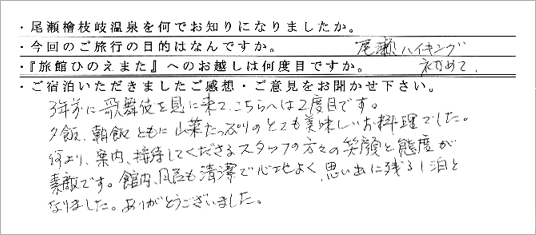 ・尾瀬檜枝岐温泉を何でお知りになりましたか。
・今回のご旅行の目的はなんですか。 尾瀬ハイキング
・『旅館ひのえまた』へのお越しは何度目ですか。 初めて、
・ご宿泊いただきましたご感想・ご意見をお聞かせ下さい。
3年前に歌舞伎を見に来て、こちらへは2度目です。
夕飯、朝飯ともに山菜たっぷりのとても美味しいお料理でした。
何より、案内、接待してくださるスタッフの方々の笑顔と態度が
素敵です。館内、風呂も清潔で心地よく、思い出に残る1泊と
なりました。ありがとうございました。